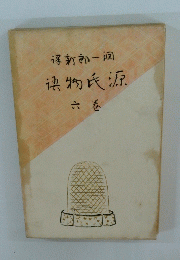 譯新郎一潤
語物氏源
六巻